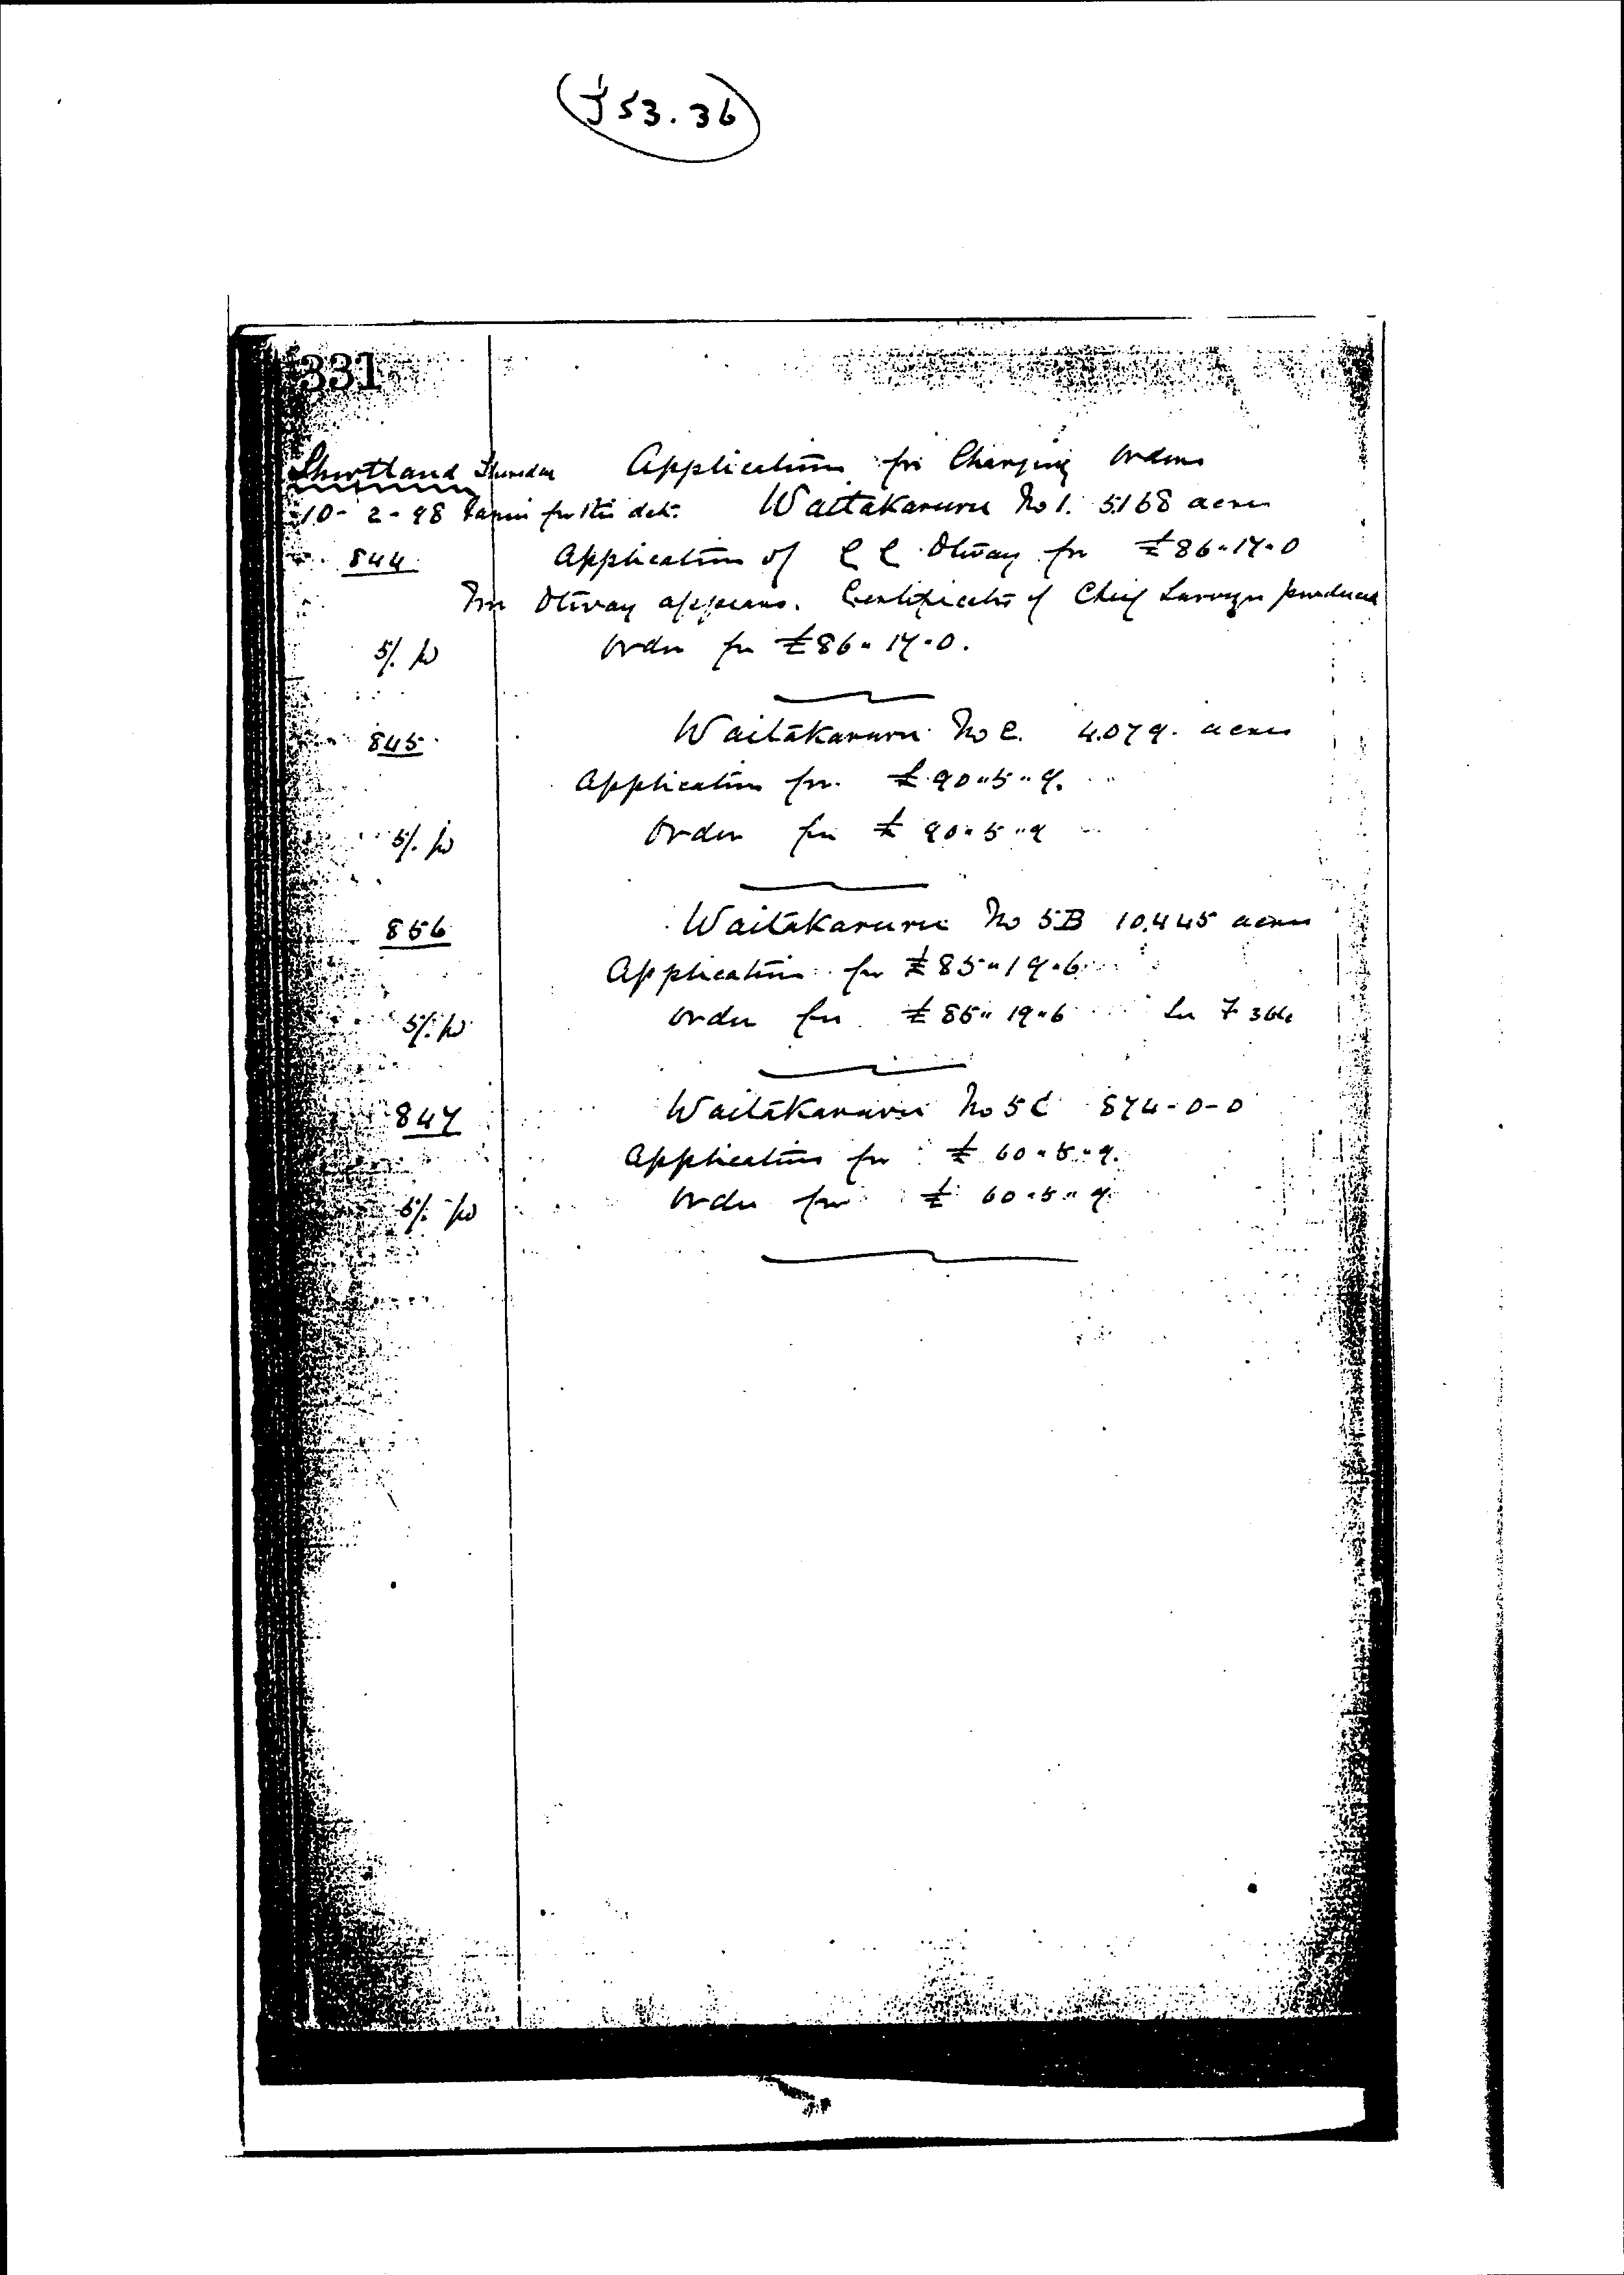 J 53.36
331
Shortland Thursday Application for Charging Orders
10-2-98 for this date. Waitakaruru No 1. 5168 acres
844 Application of C C Otway for £86-17-0
Mr Otway appears. Certificate of Chief Surveyor produced
5/. pd Order for £86-17-0.
845 Waitakaruru No 2. 4.079. acres
Application for £90-5-9.
5/. pd Order for £90-5-9
856 Waitakaruru No 5B 10.445 acres
Application for £85-19-6
5/. pd Order for £85-19-6 7 366
847 Waitakaruru No 5C 874-0-0
Application for £60-5-9.
5/. pd Order for £60-5-9